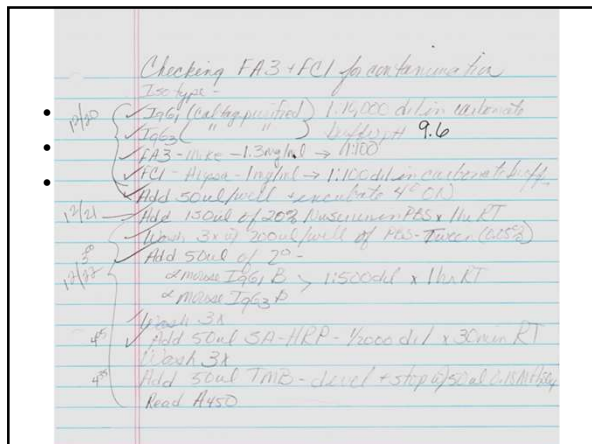 Checking FA3 + FC1 for contamination
Isotype -
12/20 ✓ IgG1 (Caltag purified) 1:14,000 dil in carbonate
✓ IgG3 ( " " ) buffer pH 9.6
✓ FA3 - Mike - 1.3mg/ml → 1:100
✓ FC1 - Alyssa - 1mg/ml → 1:100 dil in carbonate buff.
✓ Add 50ul/well + incubate 4° ON
12/21 Add 150ul of 20% Nuserum in PBS x 1hr RT
✓ Wash 3x w/ 200ul/well of PBS-Tween (0.05%)
12/22 ✓ Add 50ul of 2° -
α mouse IgG1 B > 1:500 dil x 1hr RT
α mouse IgG3 B
✓ Wash 3x
✓ Add 50ul SA-HRP - 1/2000 dil x 30min RT
Wash 3x
Add 50ul TMB - devel + stop w/ 50ul
Read A450